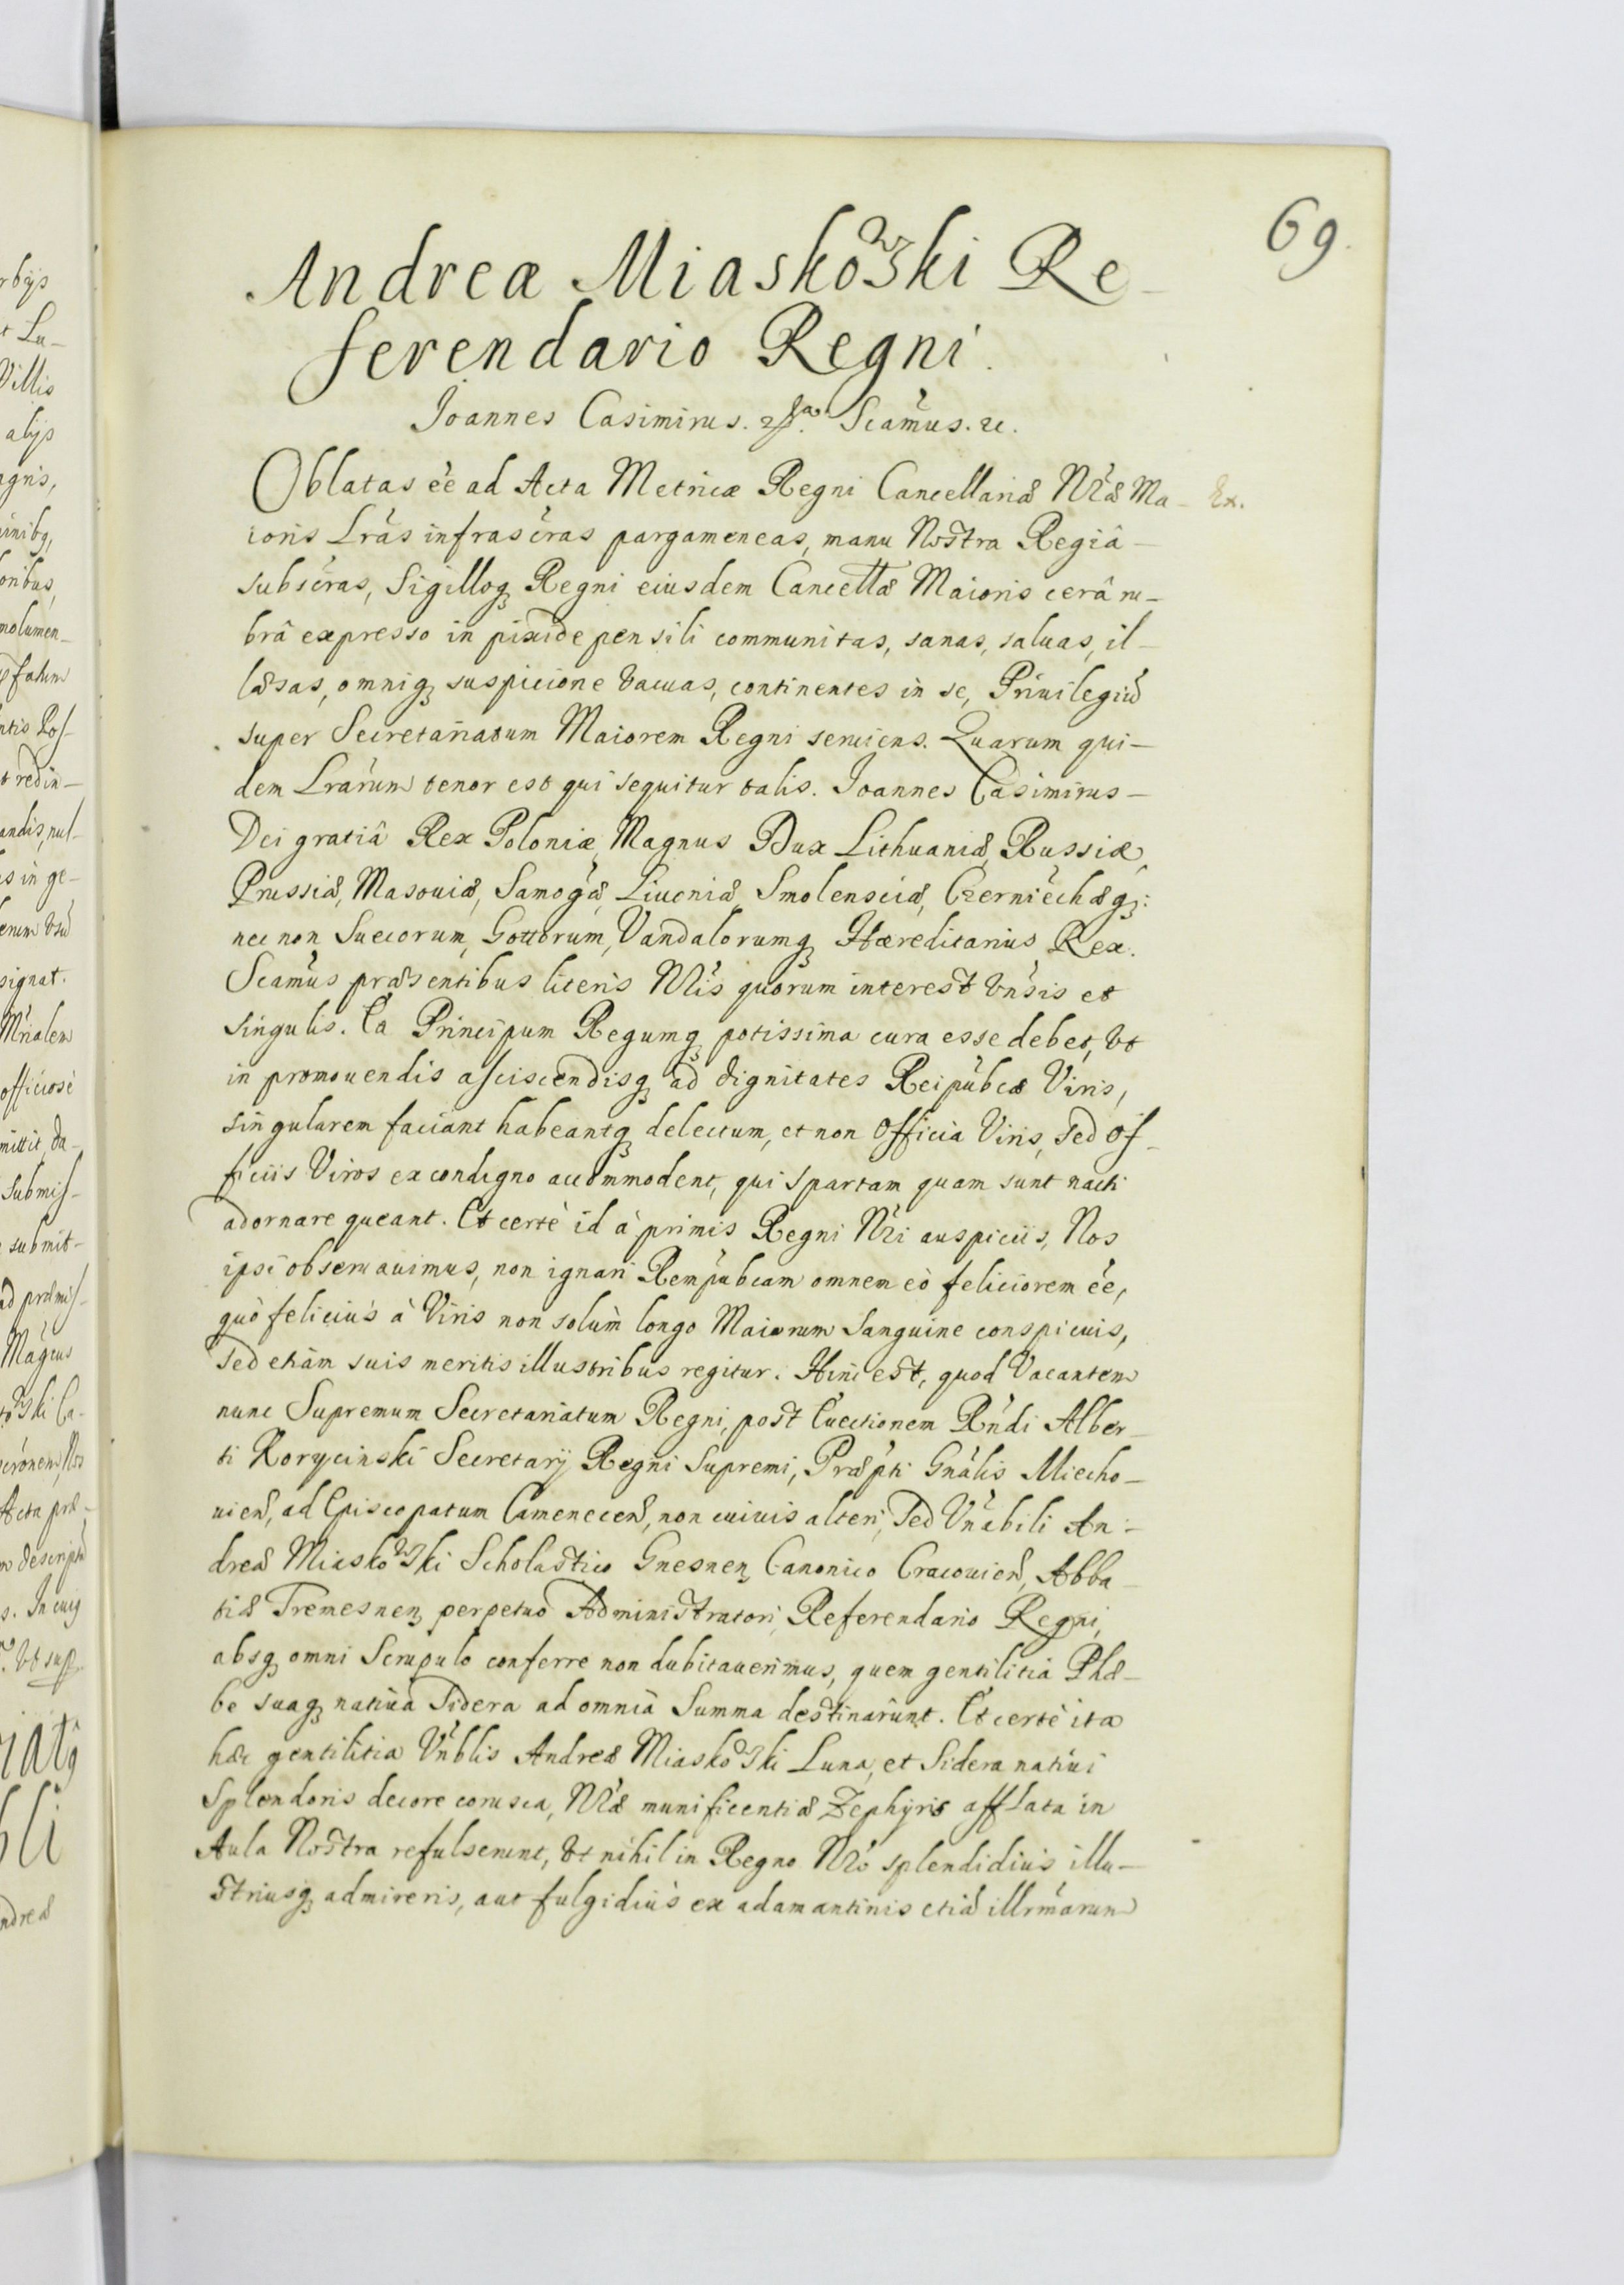 69.
Andreæ Miaskowski Re-
ferendario Regni.
Joannes Casimirus. Scamus. &c.
Oblatas ee ad Acta Metricæ Regni Cancellariæ Nræ Ma-
Ex.
ioris Lras infrascras pargameneas, manu Nostra Regiâ-
subscras, Sigilloq Regni eiusdem Cancellæ Maioris cerâ ru-
brâ expresso in pixide pensili communitas, sanas, saluas, il-
læsas, omniq suspicione vacuas, continentes in se, Priuilegiū
super Secretariatum Maiorem Regni seruiens. Quarum qui-
dem Lrarum tenor est qui sequitur talis. Joannes Casimirus-
Dei gratiâ Rex Poloniæ, Magnus Dux Lithuaniæ, Russiæ,
Prussiæ, Masouiæ, Samogæ, Liuoniæ, Smolensciæ, Czerniechæq:
nec non Suecorum, Gottorum, Vandalorumq Hæreditarius Rex.
Scamus præsentibus literis Nris quorum interest vnsis et
singulis. Ea Principum Regumq potissima cura esse debet, vt
in promouendis asciscendisq ad dignitates Reipubcæ Viris,
singularem faciant habeantq delectum, et non Officia Viris, sed Of-
ficiis Viros ex condigno accommodent, qui Spartam quam sunt nacti
adornare queant. Et certè id à primis Regni Nri auspiciis, Nos
ipsi obseruauimus, non ignari Rempubcam omnem eò feliciorem ee,
quò feliciùs à Viris non solùm longo Maiorum Sanguine conspicuis,
sed etiàm suis meritis illustribus regitur. Hinc est, quod Vacantem
nunc Supremum Secretariatum Regni, post Euectionem Rndi Alber-
ti Korycinski Secretarij Regni Supremi, Præpti Gnalis Miecho-
uien, ad Episcopatum Camenecen, non cuiuis alteri, sed Vnabili An-
dreæ Miaskowski Scholastico Gnesnen, Canonico Cracouien, Abba-
tiæ Tremesnen perpetuo Administratori, Referendario Regni,
absq omni Scrupulo conferre non dubitauerimus, quem gentilitia Phæ-
be suaq natiua Sidera ad omnia Summa destinarunt. Et certè ita
hæc gentilitia Vnblis Andreæ Miaskowski Luna, et Sidera natiui
Splendoris decore corusca, Nræ munificentiæ Zephyris afflata in
Aula Nostra refulserunt, vt nihil in Regno Nro splendidiùs illu-
striusq admireris, aut fulgidiùs ex adamantinis etiā illrmarum